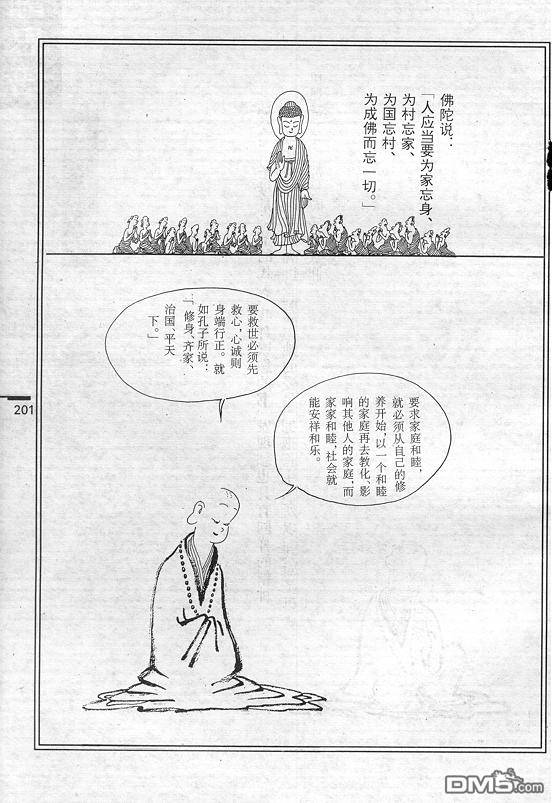 佛陀说：
「人应当要为家忘身、
为村忘家、
为国忘村、
为成佛而忘一切。」
要救世必须先
救心，心诚则
身端行正。就
如孔子所说：
「修身、齐家、
治国、平天
下。」
要求家庭和睦，
就必须从自己的修
养开始，以一个和睦
的家庭再去教化、影
响其他人的家庭，而
家家和睦，社会就
能安祥和乐。
201
DM5.com